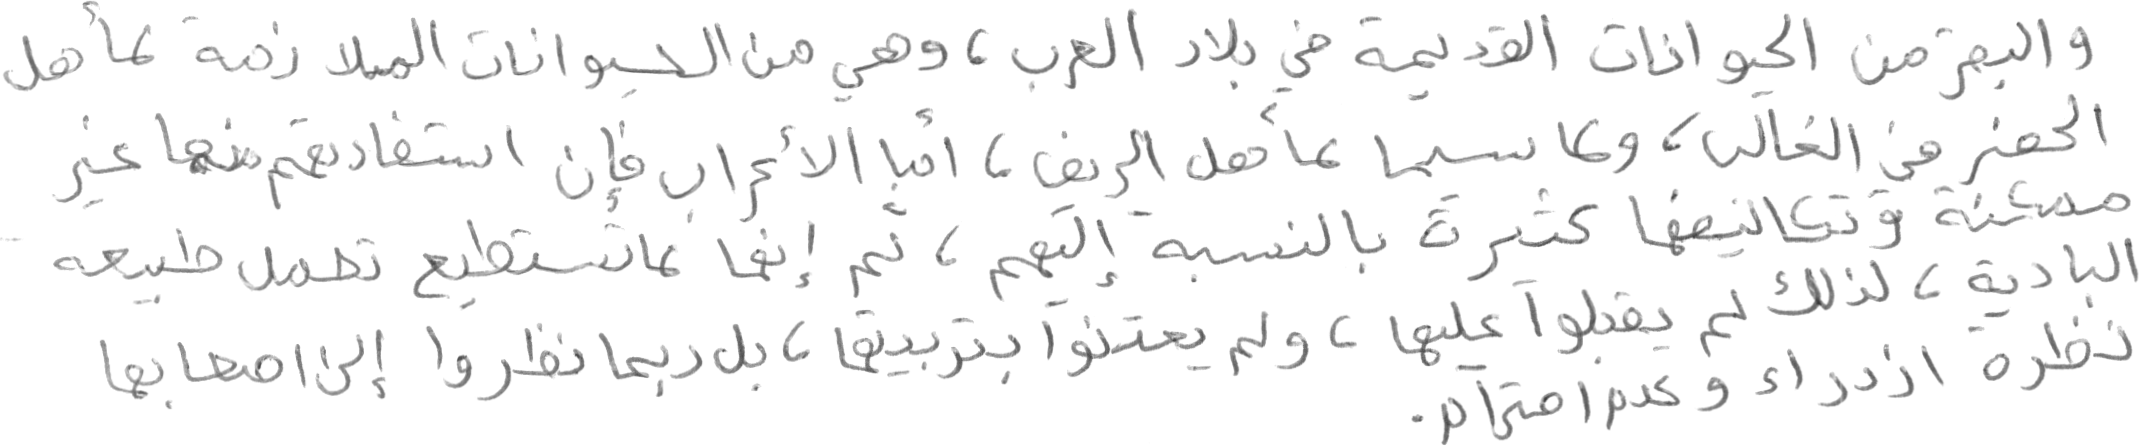 والبقر من الحيوانات القديمة في بلاد العرب، وهي من الحيوانات الملازمة لأهل
الحضر في الغالب، ولا سيما لأهل الريف، أما الأعراب فإن استفادتهم منها غير
ممكنة وتكاليفها كثيرة بالنسبة إليهم، ثم إنها لا تستطيع تحمل طبيعه
البادية، لذلك لم يقبلوا عليها، ولم يعتنوا بتربيتها، بل ربما نظروا إلى اصحابها
نظره ازدراء وعدم احترام.